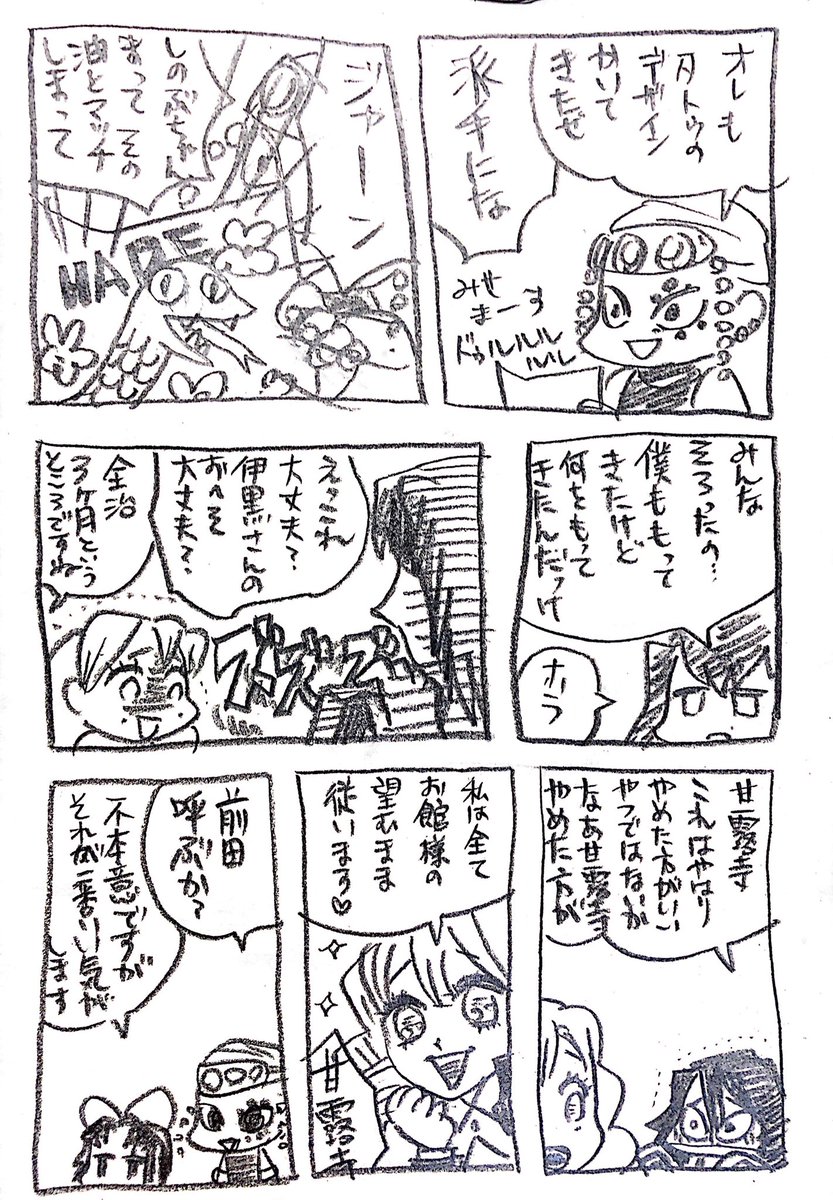 オレも
タトゥの
デザイン
かいて
きたぜ
派手にな
みせ
まーす
ドゥルルルル
ルル
ジャーン
しのぶちゃん
まって その
油とマッチ
しまって
HADE
みんな
そろったの…
僕ももって
きたけど
何をもって
きたんだっけ
ホラ
えっこれ
大丈夫?
伊黒さんの
おへそ
大丈夫?
全治
3ヶ月という
ところですね
甘露寺
これはやはり
やめた方がいい
やつではないか
なあ甘露寺
やめた方が
私は全て
お館様の
望むまま
従います♡
甘露寺
前田
呼ぶか?
不本意ですが
それが一番いい気が
します